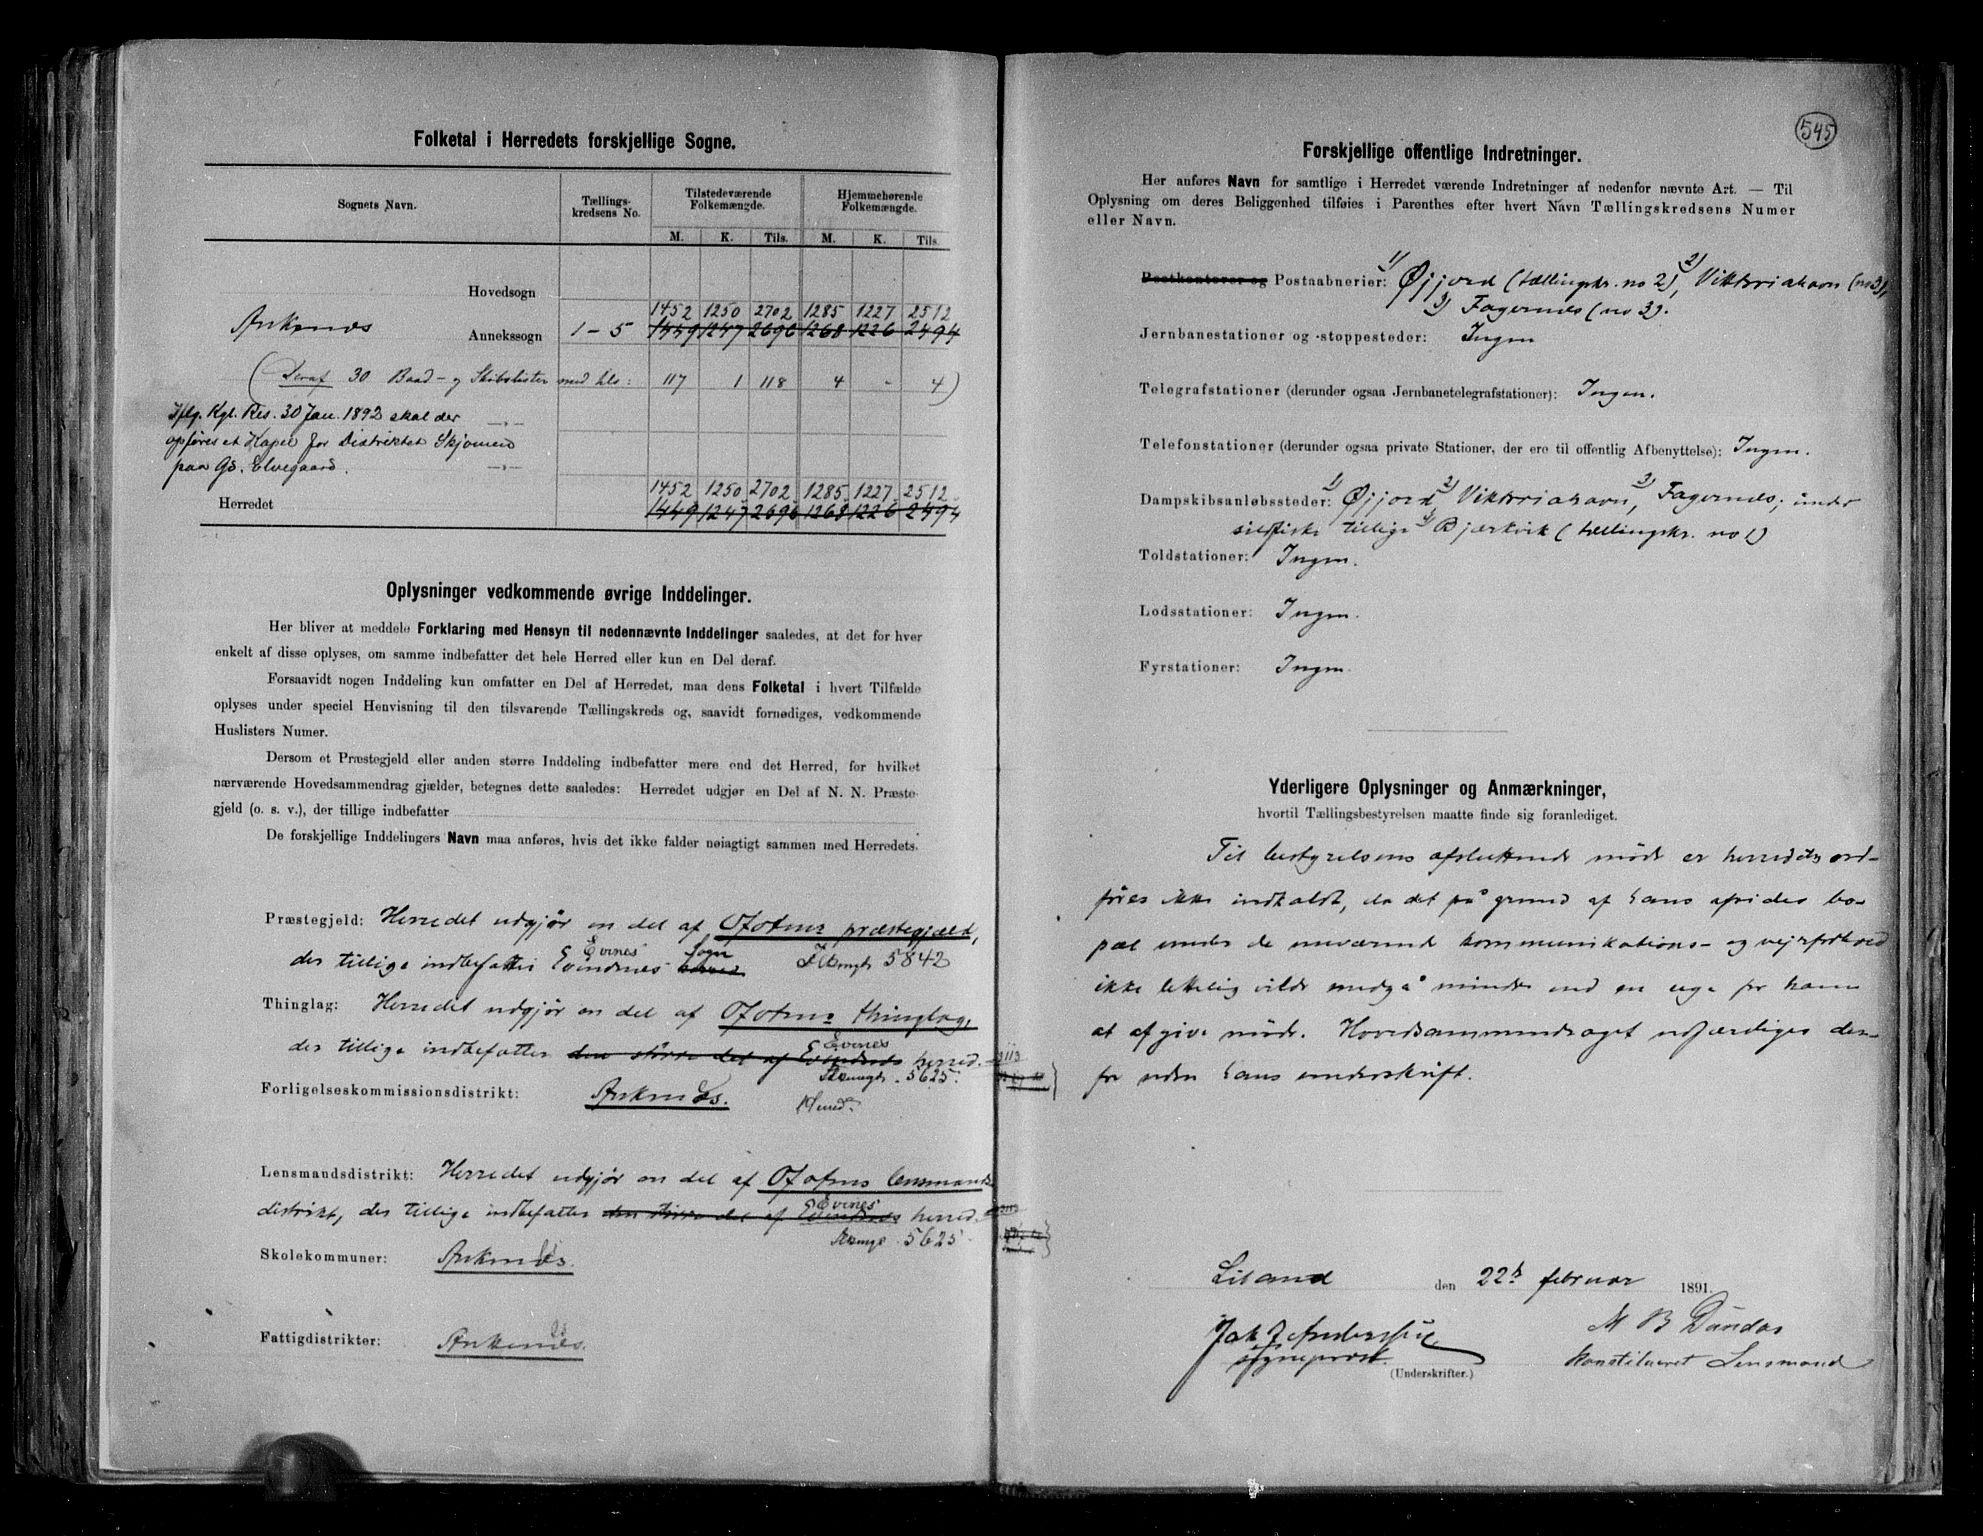 Folketal i Herredets forskjellige Sogne.
Sognets Navn. Tællings-kredsens No. Tilstedeværende Folkemængde. Hjemmehørende Folkemængde.
M. K. Tils. M. K. Tils.
Hovedsogn
1452 1250 2702 1285 1227 2512
Ankenæs Annekssogn 1-5 1449 1247 2696 1268 1226 2494
(Deraf 30 Baad- og Skibslister med tils: 117 1 118 4 - 4)
Iflg. Kgl. Res. 30 Jan. 1892 skal der
opføres et Kapel for Distriktet Skjomen
paa Gd. Elvegaard.
1452 1250 2702 1285 1227 2512
Herredet 1449 1247 2696 1268 1226 2494
Oplysninger vedkommende øvrige Inddelinger.
Her bliver at meddele Forklaring med Hensyn til nedennævnte Inddelinger saaledes, at det for hver
enkelt af disse oplyses, om samme indbefatter det hele Herred eller kun en Del deraf.
Forsaavidt nogen Inddeling kun omfatter en Del af Herredet, maa dens Folketal i hvert Tilfælde
oplyses under speciel Henvisning til den tilsvarende Tællingskreds og, saavidt fornødiges, vedkommende
Huslisters Numer.
Dersom et Præstegjeld eller anden større Inddeling indbefatter mere end det Herred, for hvilket
nærværende Hovedsammendrag gjælder, betegnes dette saaledes: Herredet udgjør en Del af N. N. Præste-
gjeld (o. s. v.), der tillige indbefatter
De forskjellige Inddelingers Navn maa anføres, hvis det ikke falder nøiagtigt sammen med Herredets.
Præstegjeld: Herredet udgjør en del af Ofotens præstegjæld,
Evenes Sogn
der tillige indbefatter Evindnes herred Flkmgd. 5842
Thinglag: Herredet udgjør en del af Ofotens thinglag,
Evenes
der tillige indbefatter den større del af Evindnes herred.
Flkmngde. 5625.
Forligelseskommissionsdistrikt: Ankenæs.
Lensmandsdistrikt: Herredet udgjør en del af Ofotens lensmands
Evenes
distrikt, der tillige indbefatter den større del af Evindnes herred.
Flkmngd. 5625.
Skolekommuner: Ankenæs.
Fattigdistrikter: Ankenæs.
545
Forskjellige offentlige Indretninger.
Her anføres Navn for samtlige i Herredet værende Indretninger af nedenfor nævnte Art. — Til
Oplysning om deres Beliggenhed tilføies i Parenthes efter hvert Navn Tællingskredsens Numer
eller Navn.
Postkontorer og Postaabnerier: 1) Øijord (tællingskr. no 2), 2) Viktoriahavn (no 3),
3) Fagernes (no 3).
Jernbanestationer og -stoppesteder: Ingen
Telegrafstationer (derunder ogsaa Jernbanetelegrafstationer): Ingen.
Telefonstationer (derunder ogsaa private Stationer, der ere til offentlig Afbenyttelse): Ingen.
Dampskibsanløbssteder: 1) Øijord, 2) Viktoriahavn, 3) Fagernes; under
sildfiske tillige 4) Bjerkvik (tællingskr. no 1)
Toldstationer: Ingen.
Lodsstationer: Ingen.
Fyrstationer: Ingen.
Yderligere Oplysninger og Anmærkninger,
hvortil Tællingsbestyrelsen maatte finde sig foranlediget.
Til bestyrelsens afsluttende møde er herredets ord-
fører ikke indkaldt, da det på grund af hans afsides bo-
pæl under de nuværende kommunikations- og vejrforhold
ikke lettelig vilde medgå mindre end en uge for ham
at afgive møde. Hovedsammendraget udfærdiges der-
for uden hans underskrift.
Liland den 22de februar 1891.
M B Dundas
sogneprest. konstitueret Lensmand
(Underskrifter.)